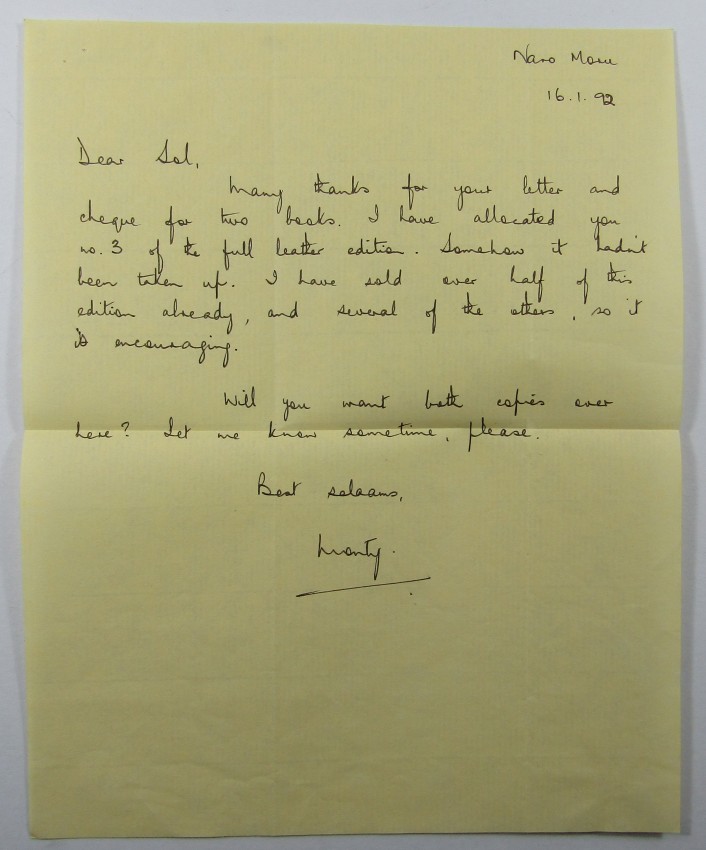 Naro Moru
16.1.92
Dear Sol,
Many thanks for your letter and
cheque for two books. I have allocated you
no. 3 of the full leather edition. Somehow it hadn't
been taken up. I have sold over half of this
edition already, and several of the others, so it
is encouraging.
Will you want both copies over
here? Let me know sometime, please.
Best salaams,
Monty.